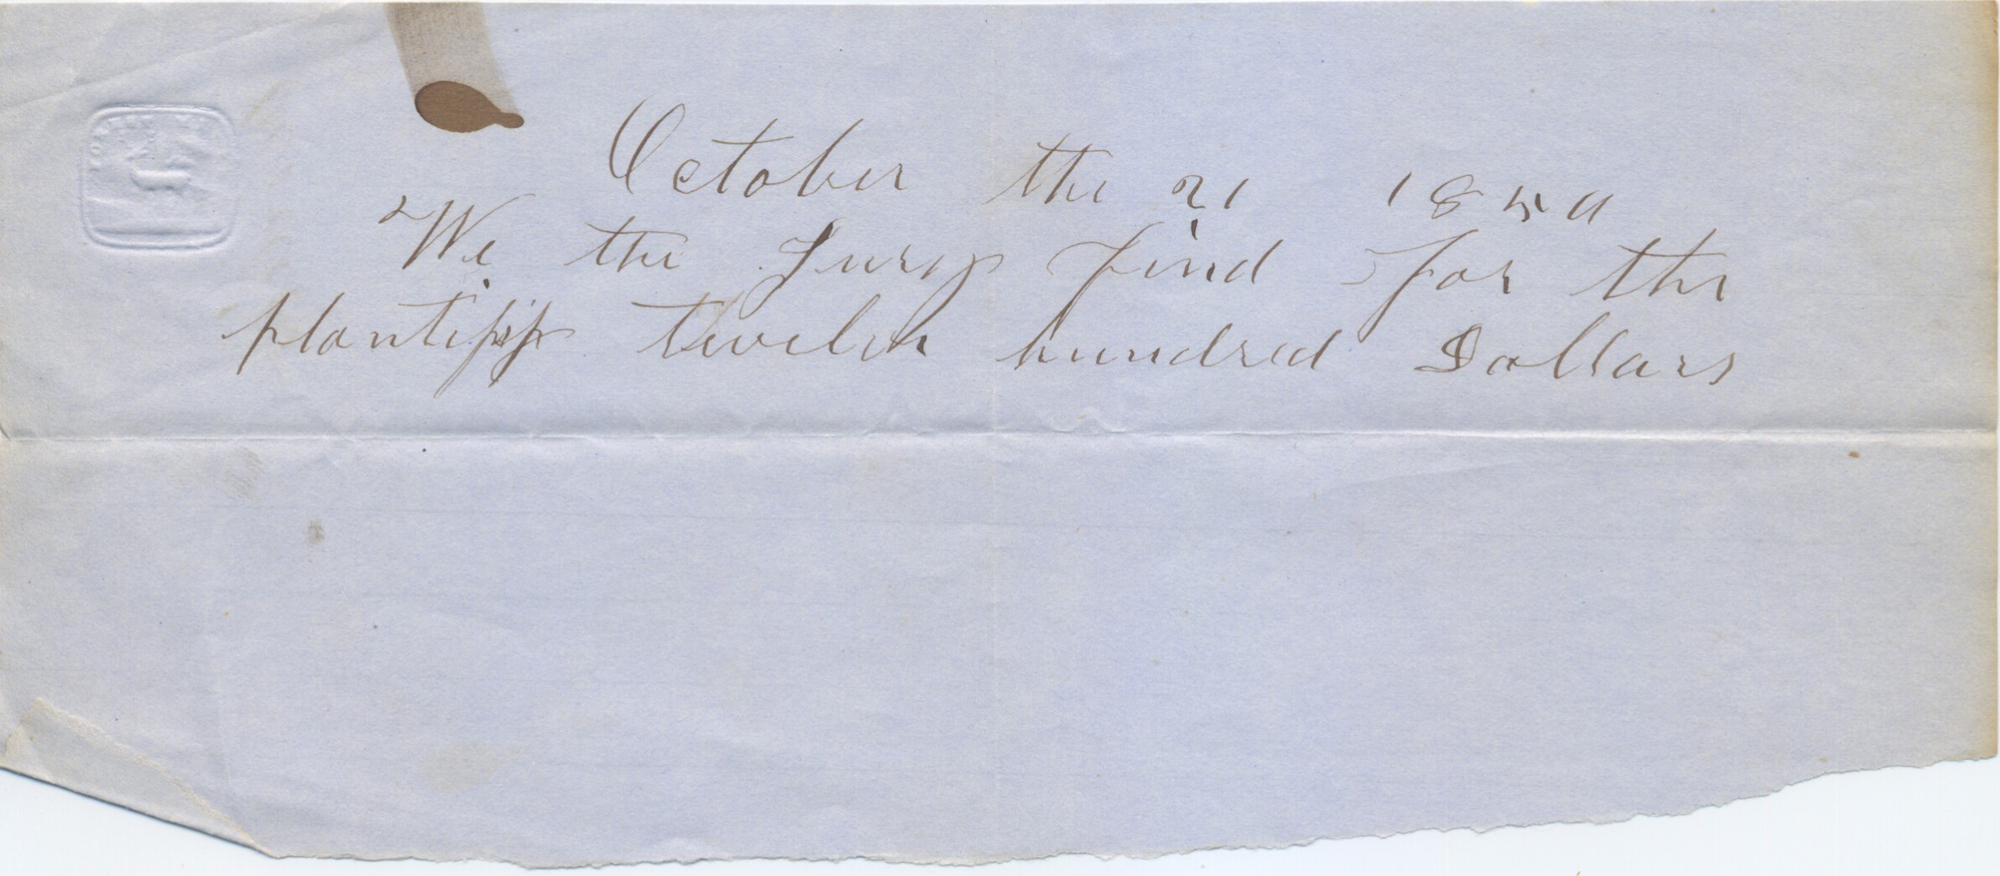 October the 21 1850
We the Jury find for the
plantiff twelve hundred Dollars